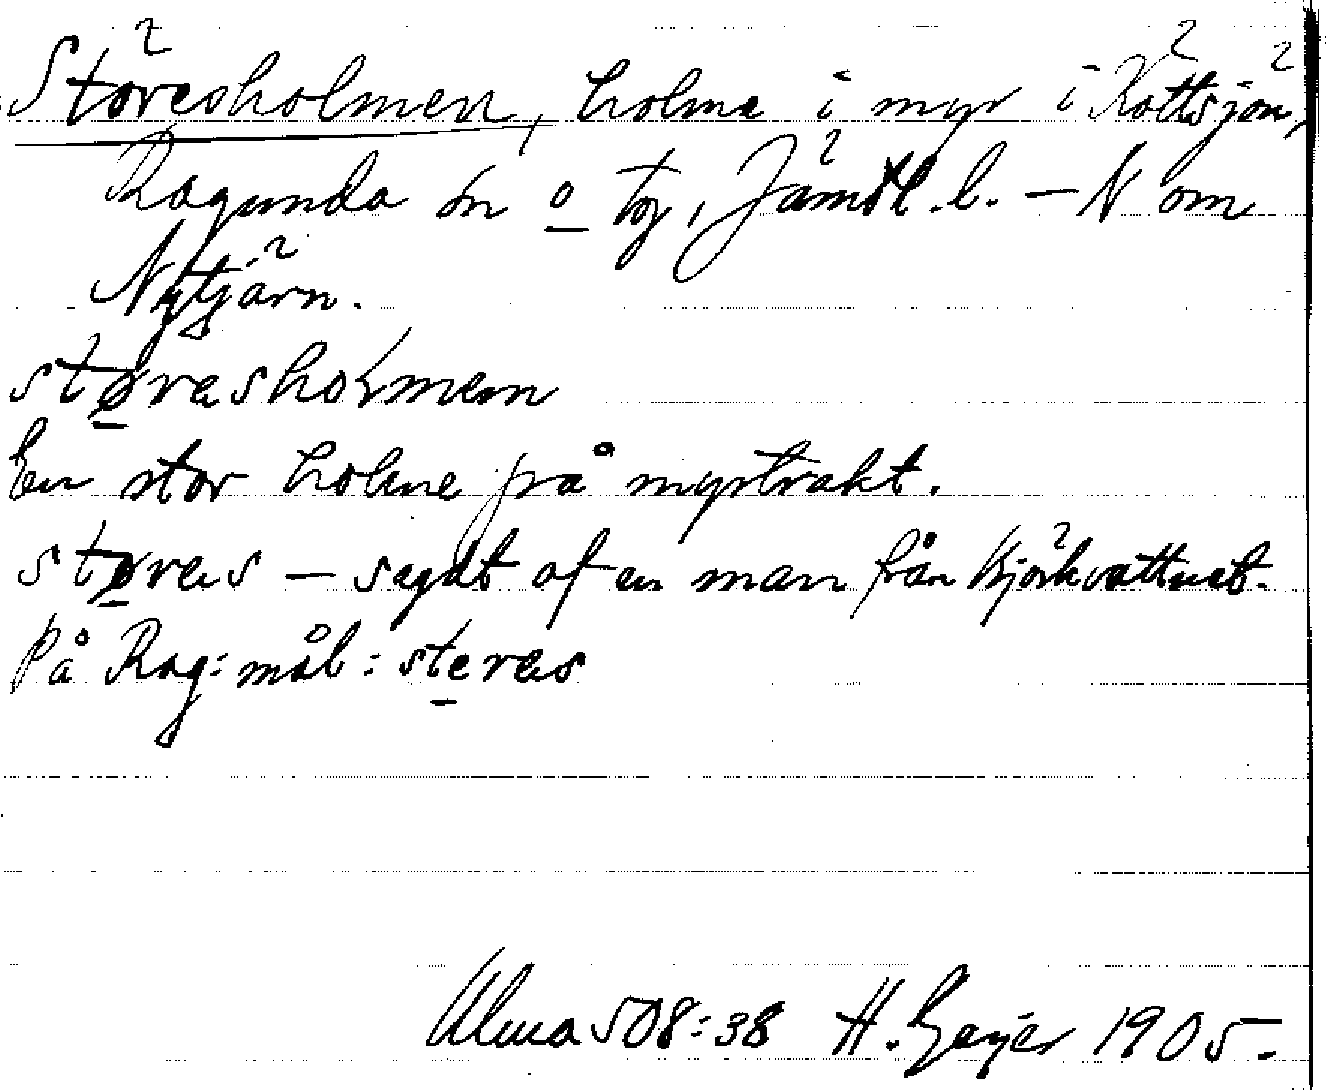 Störesholmen, holme i myr i Kottsjön,
Ragunda sn o tg, Jämtl. l. — N om
Nytjärn.
støresholmen
En stor holme på myrtrakt.
støres — sagdt af en man från Björkvattnet.
På Rag: mål: steres
Alma 508:38 H. Geijer 1905.